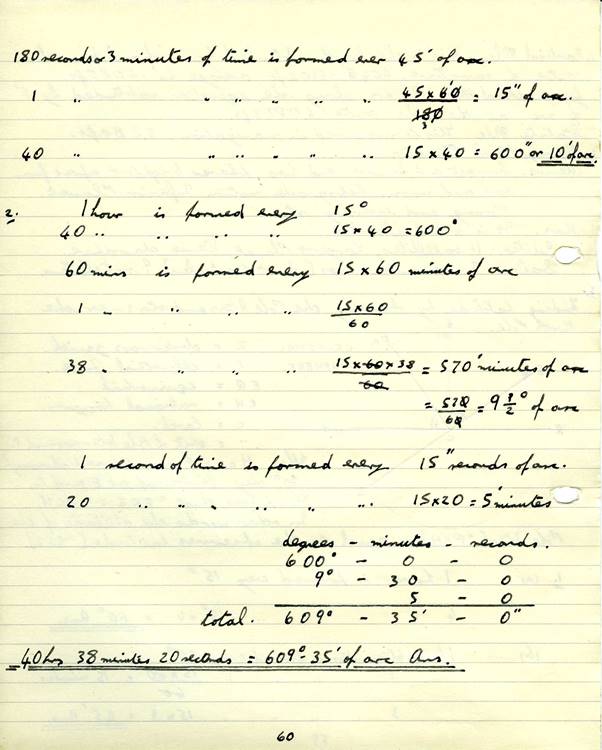 180 seconds or 3 minutes of time is formed ever 45' of arc.
1 " " " " " " 45 x 60 / 180 3 = 15" of arc.
40 " " " " " " 15 x 40 = 600" or 10' of arc.
2. 1 hour is formed every 15°
40 " " " " 15 x 40 = 600°
60 mins is formed every 15 x 60 minutes of arc
1 " " " " 15 x 60 / 60
38 " " " " 15 x 60 x 38 / 60 = 570' minutes of arc
= 570 / 60 = 9 1/2° of arc
1 second of time is formed every 15" seconds of arc.
20 " " " " " " 15 x 20 = 5' minutes
degrees - minutes - seconds.
600° - 0 - 0
9° - 30 - 0
5 - 0
total. 609° - 35' - 0"
= 40 hrs 38 minutes 20 seconds = 609° - 35' of arc Ans.
60